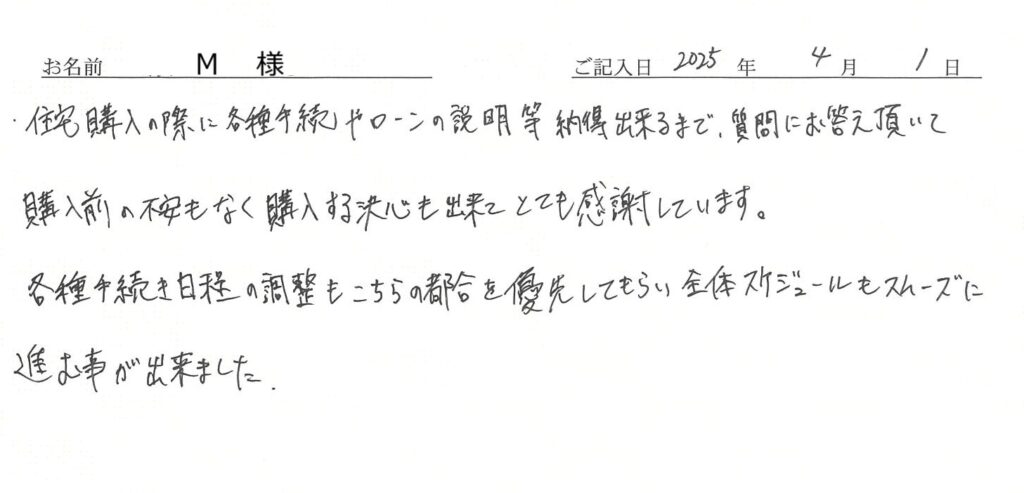 お名前 M 様 ご記入日 2025 年 4 月 1 日
・住宅購入の際に各種手続やローンの説明等納得出来るまで、質問にお答え頂いて
購入前の不安もなく購入する決心も出来てとても感謝しています。
各種手続き日程の調整もこちらの都合を優先してもらい全体スケジュールもスムーズに
進む事が出来ました.